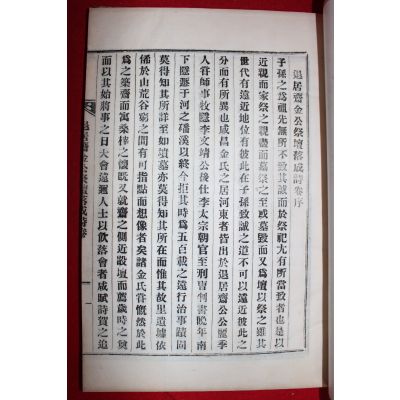 退居齋金公祭壇落成詩卷序
子孫之爲祖先無所不致其誠而於祭祀尤有所當致者也是以
近親而家祭之親盡而墓祭之至或墓毀而又爲壇以祭之雖其
世代有遠近地位有彼此在子孫致誠之道不可以遠近彼此之
分而有所異也咸昌金氏之居河東者皆出於退居齋公公麗季
人嘗師事牧隱李文靖公後仕李太宗朝官至刑曹判書晩年南
下隱遯于河之磻溪以終今拒其時爲五百載之遠行治事蹟固
莫得知其所詳至如墳墓亦莫得知其所在而惟其故里遺墟依
俙於山荒谷窮之間有可指點而想像者矣諸金氏嘗慨然於此
爲之築齋而寓桑梓之懷旣又就齋之側近設壇而薦歲時之奠
而以其始將事之日大會遠邇人士以飮落會者咸賦詩賀之追
退居齋金公祭壇落成詩卷
一